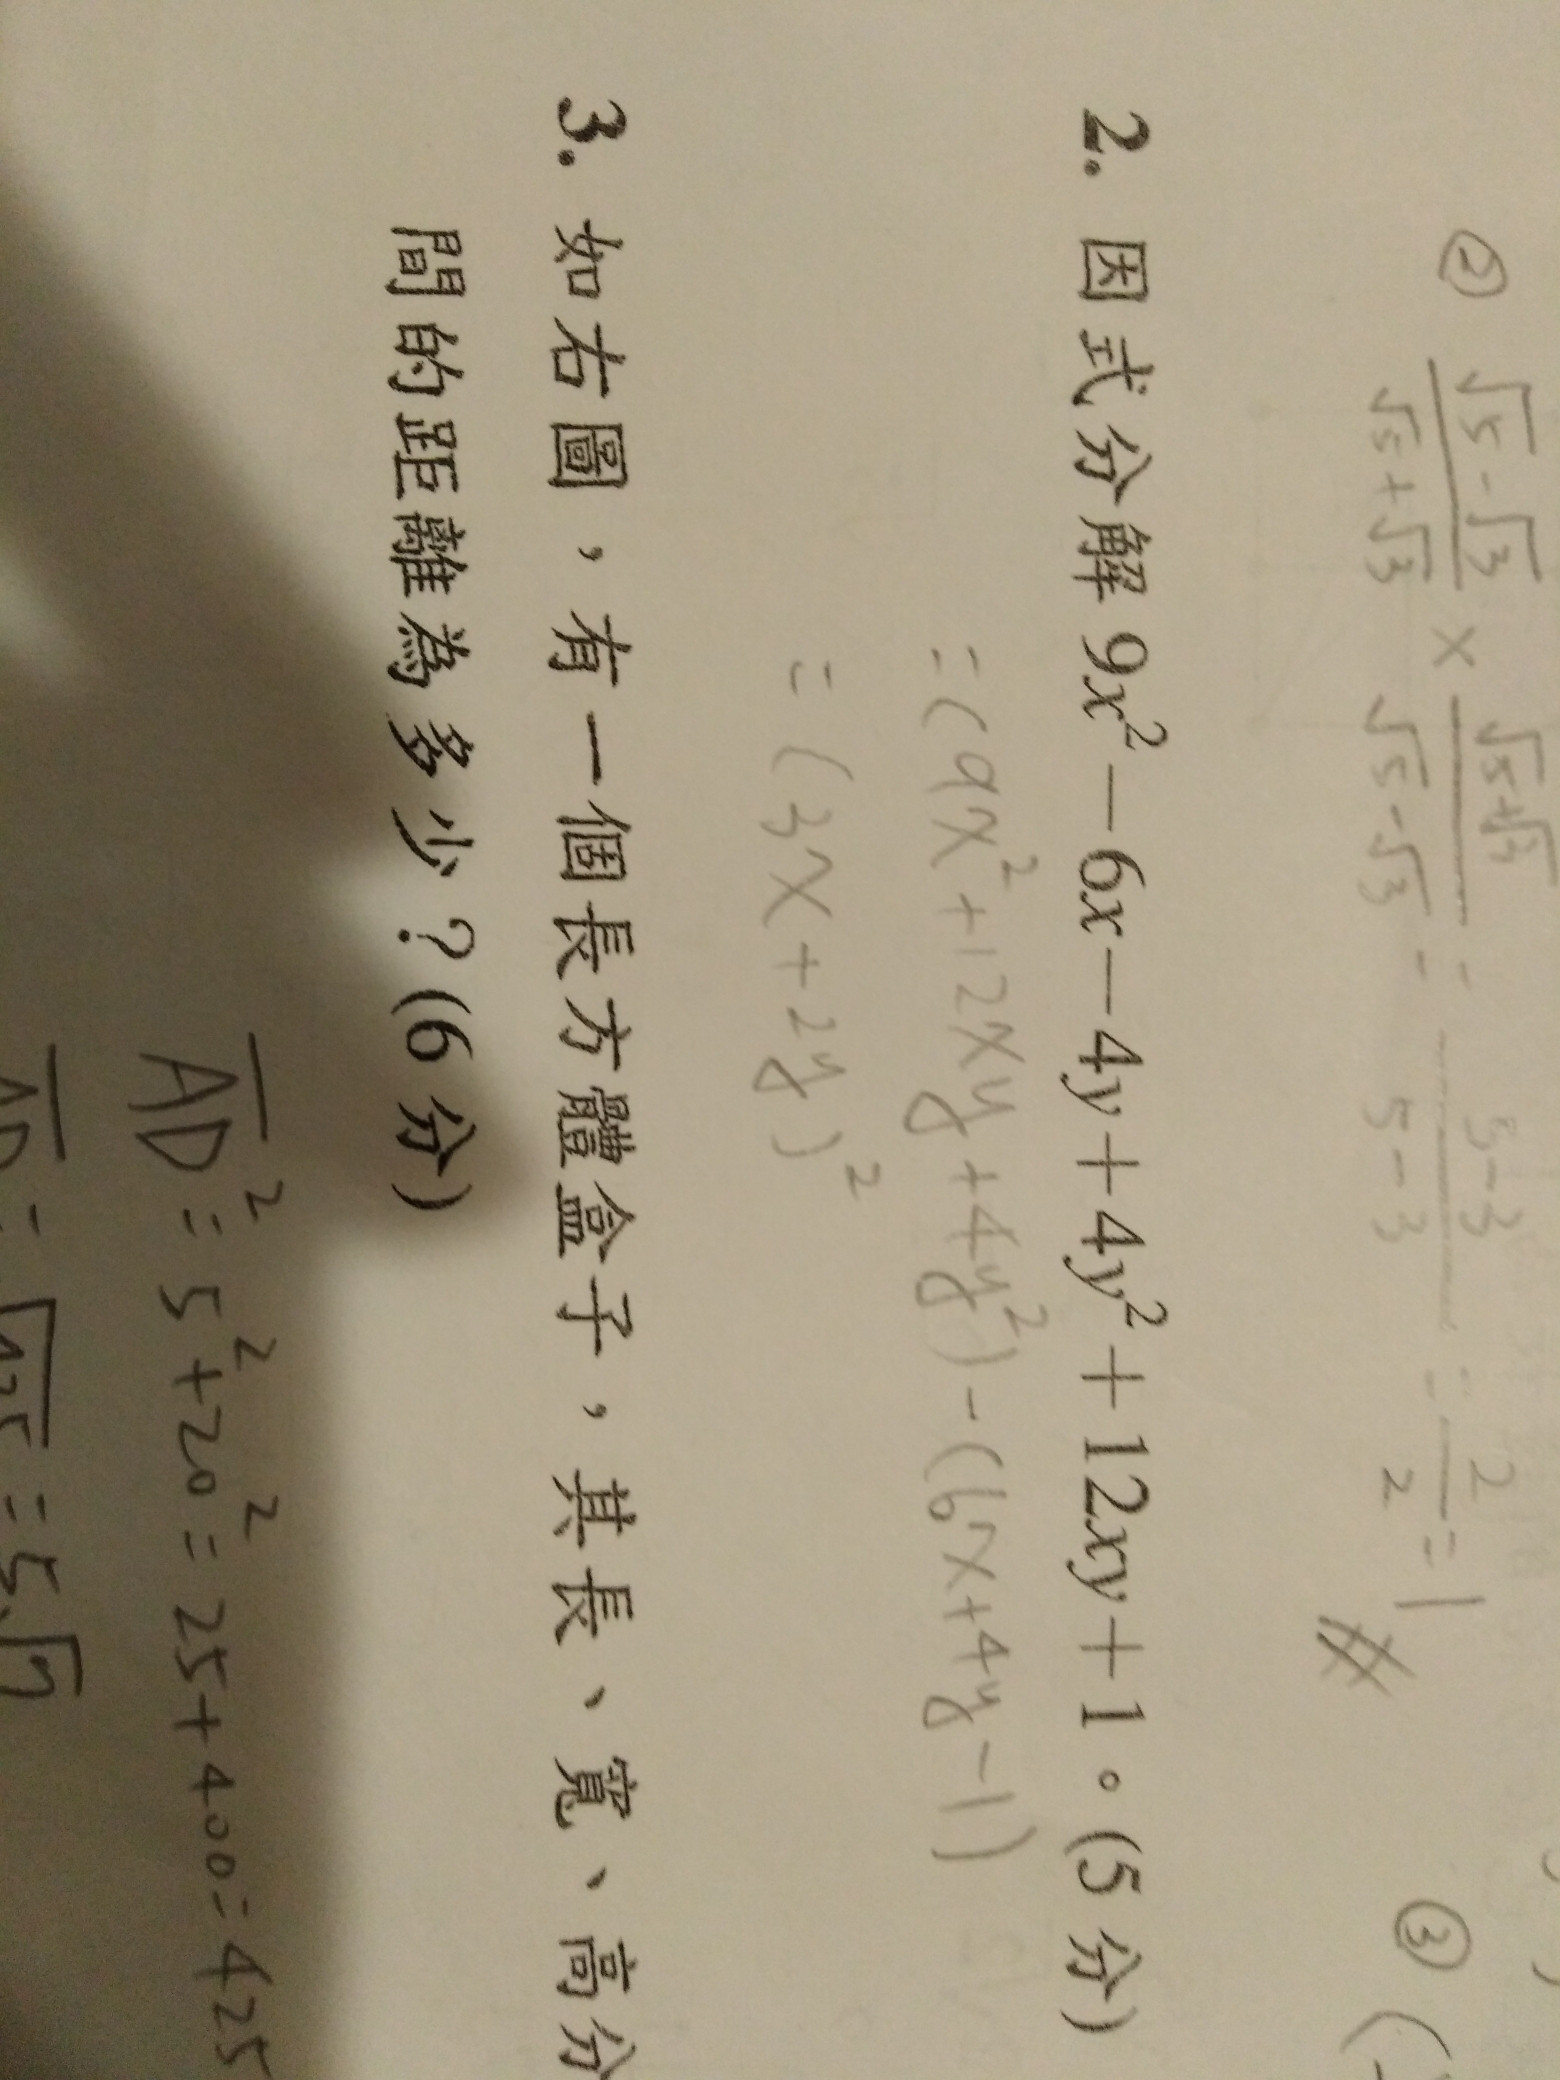 ② (√5-√3)/(√5+√3) × (√5+√3)/(√5-√3) = (5-3)/(5-3) = 2/2 = 1 #
③ (
2. 因式分解 9x²－6x－4y＋4y²＋12xy＋1。(5 分)
=(9x²+12xy+4y²)-(6x+4y-1)
=(3x+2y)²
3. 如右圖，有一個長方體盒子，其長、寬、高分
間的距離為多少？(6 分)
AD² = 5²+20² = 25+400 = 425